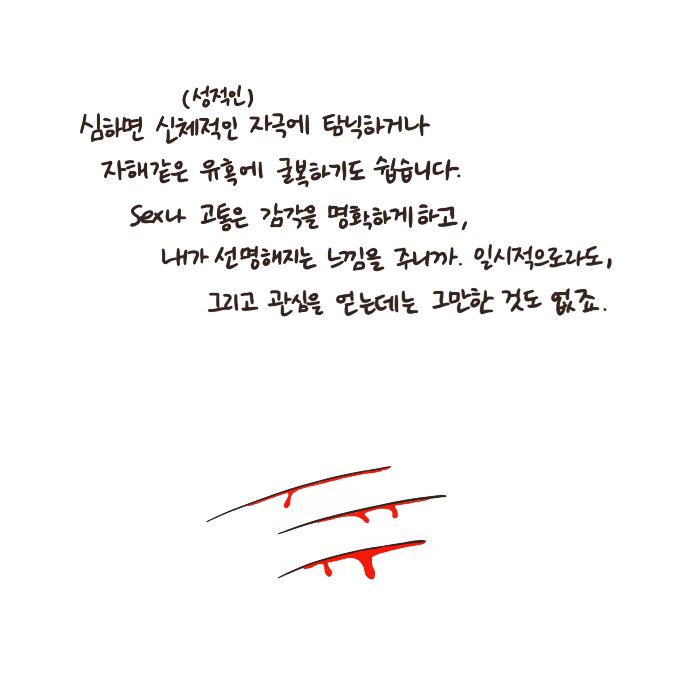 (성적인)
심하면 신체적인 자극에 탐닉하거나
자해같은 유혹에 굴복하기도 쉽습니다.
Sex나 고통은 감각을 명확하게하고,
내가 선명해지는 느낌을 주니까. 일시적으로라도,
그리고 관심을 얻는데는 그만한 것도 없죠.